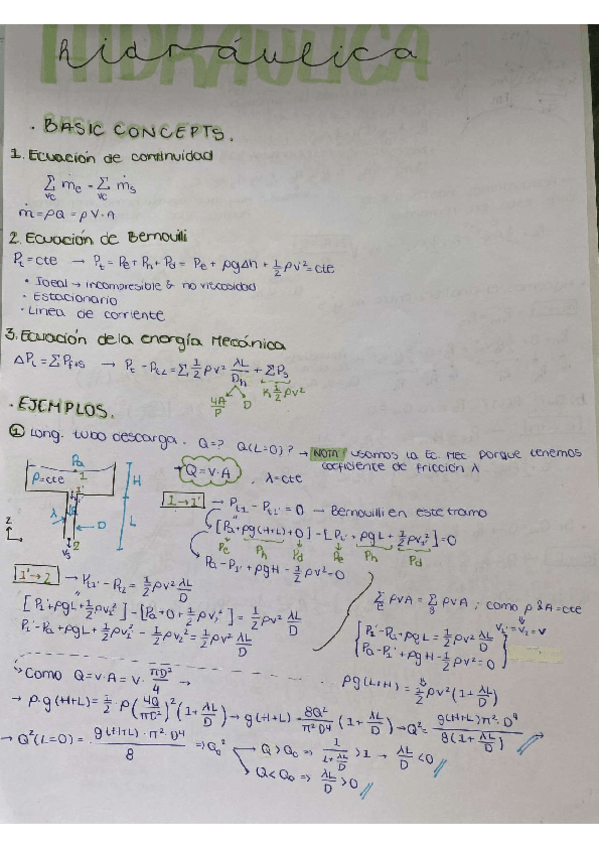 hidráulica
HIDRÁULICA
· BASIC CONCEPTS.
1. Ecuación de continuidad
Σ_vc ṁe = Σ_vc ṁs
ṁ = ρQ = ρV·A
2. Ecuación de Bernouilli
Pt = cte → Pt = Pe + Ph + Pd = Pe + ρgΔh + 1/2 ρv² = cte
• Ideal → incompresible & no viscosidad
• Estacionario
• Linea de corriente
3. Ecuación de la energía Mecánica
ΔPt = ΣPf+s → Pt - Pt2 = Σ 1/2 ρv² λL/Dh + ΣPs
4A/P D K 1/2 ρv²
· EJEMPLOS.
① Long. tubo descarga. Q=? Q(L=0)? → NOTA/ usamos la Ec. Mec porque tenemos
coeficiente de fricción λ
Pa
1
1'
ρ=cte
H
L
λ
D
z
2
Vs
Q = V·A , λ=cte
1→1' → Pt1 - Pt1' = 0 → Bernouilli en este tramo
[Pa + ρg(H+L) + 0] - [P1' + ρgL + 1/2 ρv1'²] = 0
Pe Ph Pd Pe Ph Pd
Pa - P1' + ρgH - 1/2 ρv² = 0
1'→2 → Pt1' - Pt2 = 1/2 ρv² λL/D
[P1' + ρgL + 1/2 ρv1'²] - [Pa + 0 + 1/2 ρv2²] = 1/2 ρv² λL/D
P1' - Pa + ρgL + 1/2 ρv1'² - 1/2 ρv2² = 1/2 ρv² λL/D
Σe ρVA = Σs ρVA ; como ρ & A = cte
V1' = V2 = V
P1' - Pa + ρgL = 1/2 ρv² λL/D
Pa - P1' + ρgH - 1/2 ρv² = 0
ρg(L+H) = 1/2 ρv² (1 + λL/D)
Como Q = V·A = V · πD²/4 →
→ ρ·g(H+L) = 1/2 · ρ (4Q/πD²)² (1 + λL/D) → g(H+L) = 8Q²/π²D⁴ (1 + λL/D) → Q² = g(H+L)π²·D⁴/8(1 + λL/D)
→ Q²(L=0) = g(H+L)·π²·D⁴/8 => Q0²
Q > Q0 => 1/(1 + λL/D) > 1 → λL/D < 0
Q < Q0 => λL/D > 0